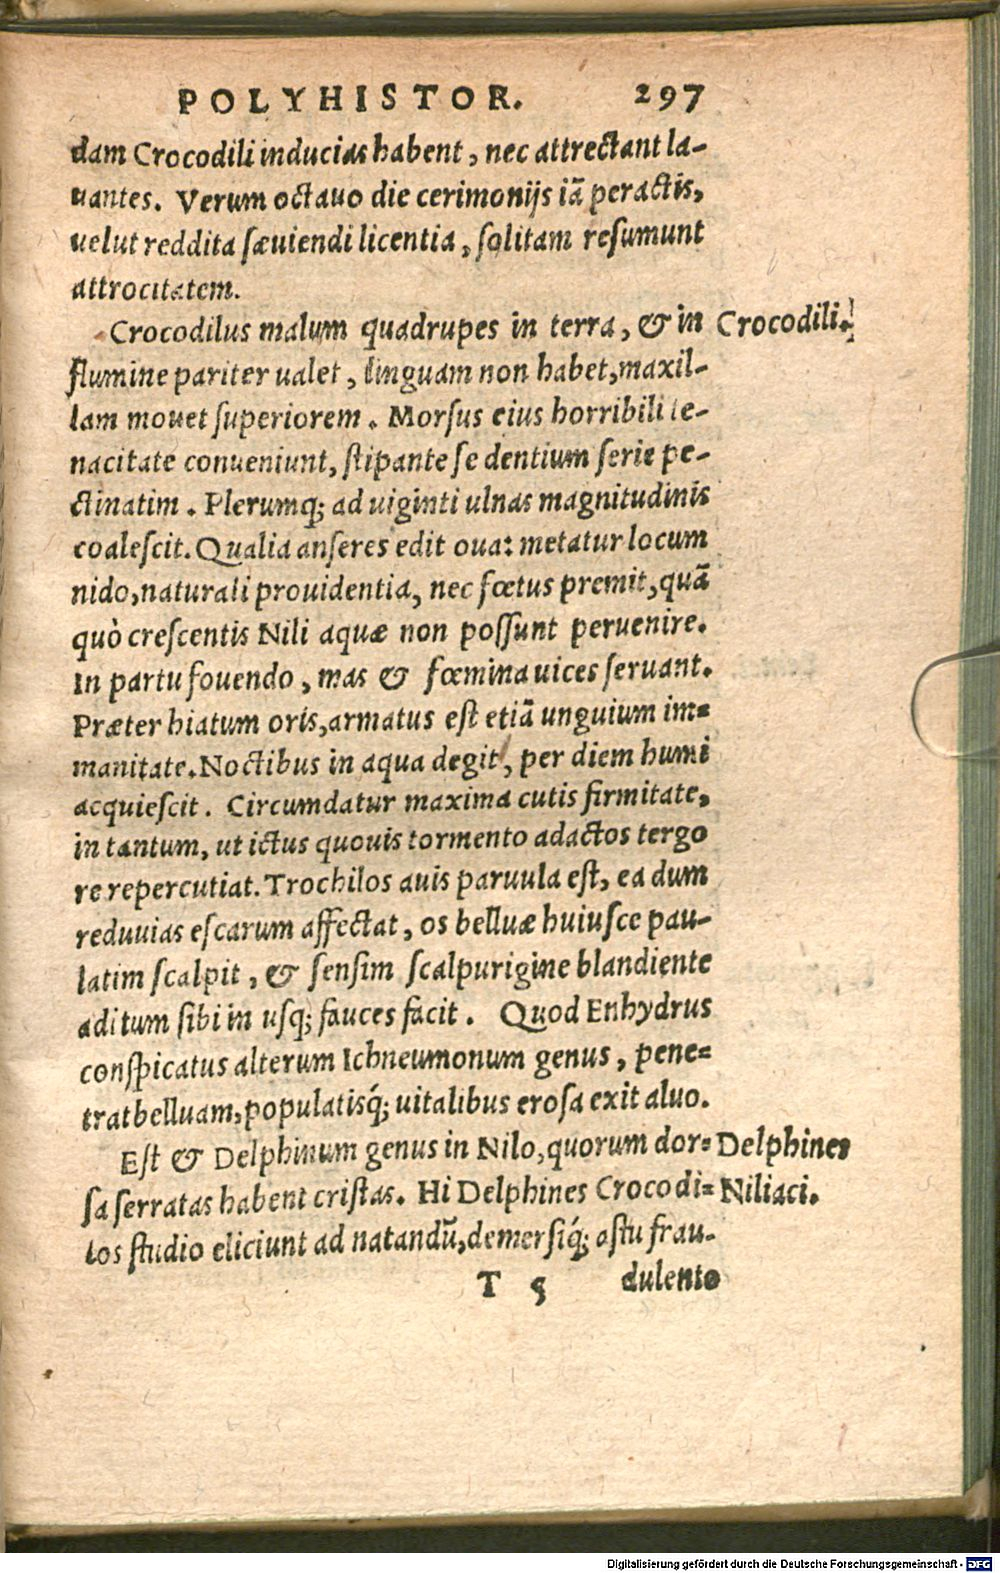 POLYHISTOR. 297
dam Crocodili inducias habent, nec attrectant la-
uantes. Verum octauo die cerimonijs iã peractis,
uelut reddita sæuiendi licentia, solitam resumunt
attrocitatem.
Crocodilus malum quadrupes in terra, & in Crocodili.
flumine pariter ualet, linguam non habet, maxil-
lam mouet superiorem. Morsus eius horribili te-
nacitate conueniunt, stipante se dentium serie pe-
ctinatim. Plerumq; ad uiginti ulnas magnitudinis
coalescit. Qualia anseres edit oua: metatur locum
nido, naturali prouidentia, nec fœtus premit, quã
quò crescentis Nili aquæ non possunt peruenire.
In partu fouendo, mas & fœmina uices seruant.
Præter hiatum oris, armatus est etiã unguium im-
manitate. Noctibus in aqua degit, per diem humi
acquiescit. Circumdatur maxima cutis firmitate,
in tantum, ut ictus quouis tormento adactos tergo
re repercutiat. Trochilos auis paruula est, ea dum
reduuias escarum affectat, os belluæ huiusce pau-
latim scalpit, & sensim scalpurigine blandiente
aditum sibi in usq; fauces facit. Quod Enhydrus
conspicatus alterum Ichneumonum genus, pene-
trat belluam, populatisq́; uitalibus erosa exit aluo.
Est & Delphinum genus in Nilo, quorum dor- Delphines
sa serratas habent cristas. Hi Delphines Crocodi- Niliaci.
los studio eliciunt ad natandũ, demersiq́; astu frau-
T 5 dulento
Digitalisierung gefördert durch die Deutsche Forschungsgemeinschaft - DFG